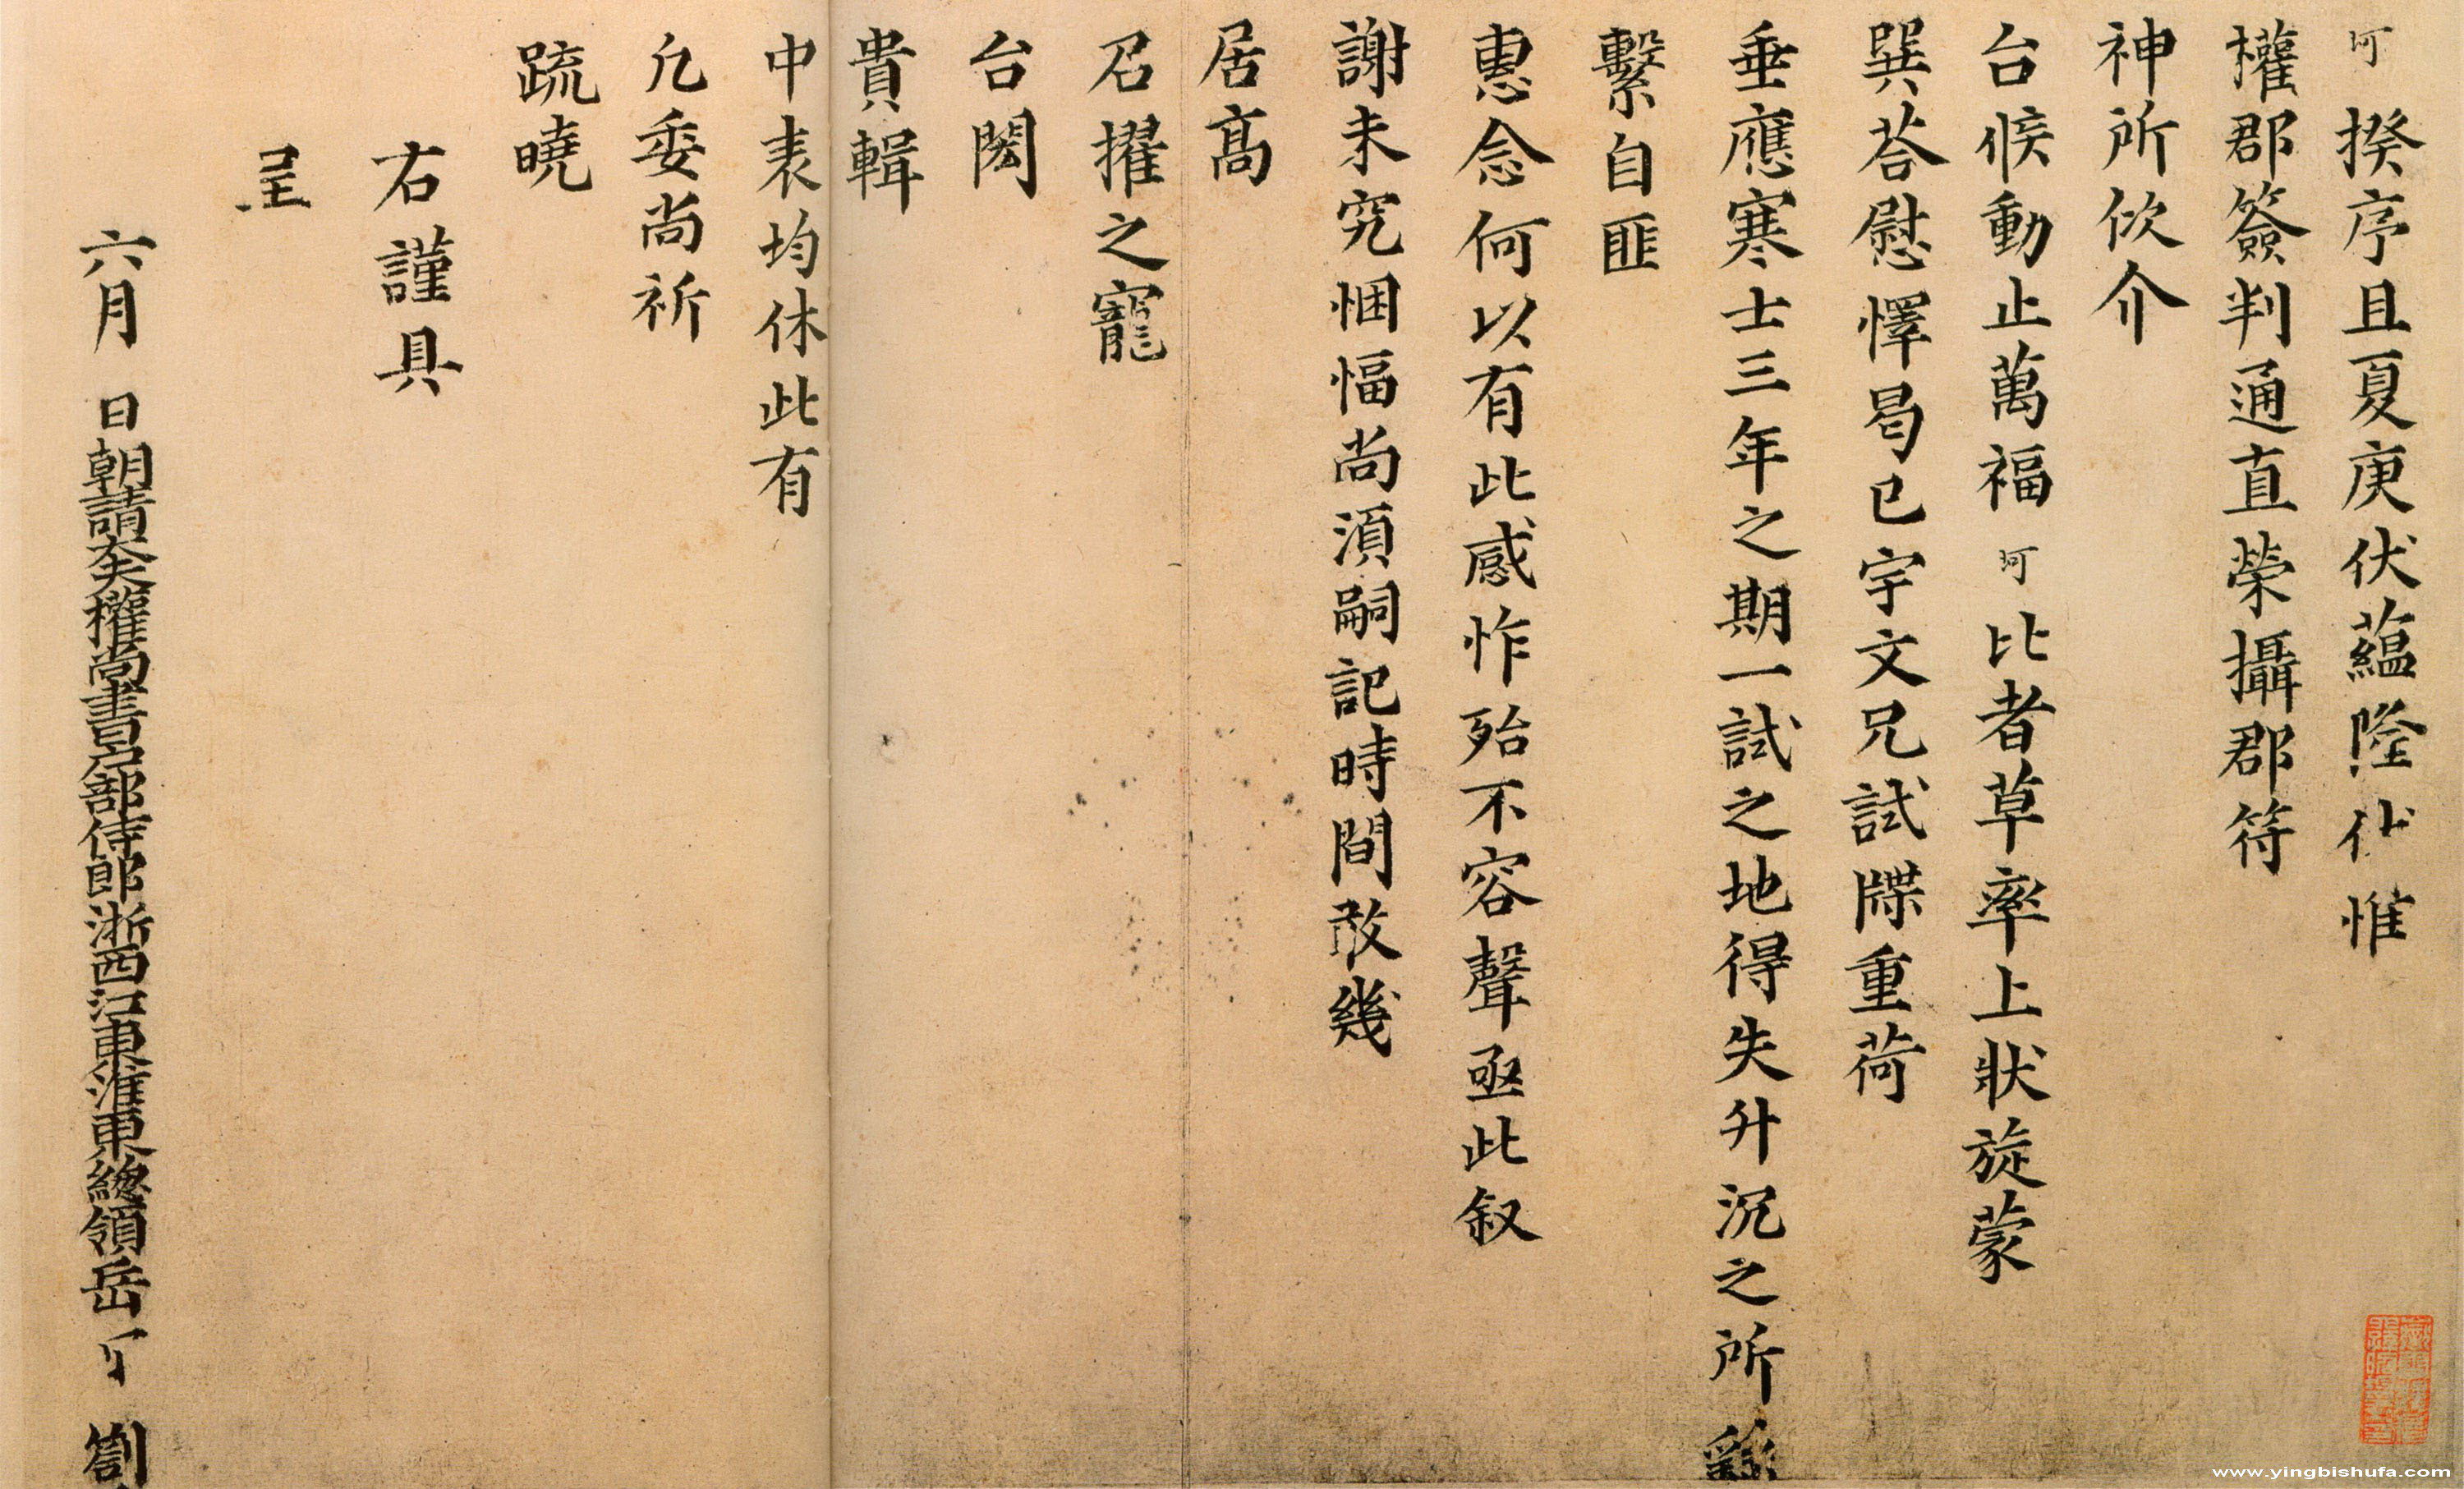 珂揆序且夏庚伏蘊隆伏惟
權郡簽判通直榮攝郡符
神所佽介
台候動止萬福珂比者草率上狀旋蒙
巽荅慰懌曷已宇文兄試牒重荷
垂應寒士三年之期一試之地得失升沉之所
繫自匪
惠念何以有此感怍殆不容聲亟此叙
謝未究悃愊尚須嗣記時間敢幾
居高
召擢之寵
台閎
貴輯
中表均休此有
凡委尚祈
疏曉
右謹具
呈
六月 日朝請大夫權尚書戶部侍郎浙西江東淮東總領岳 劄
www.yingbishufa.com